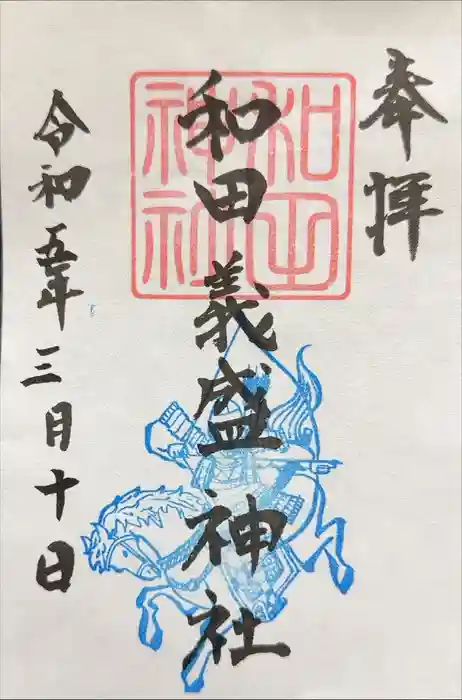 奉拝
和田義盛神社
和田神社
令和五年三月十日